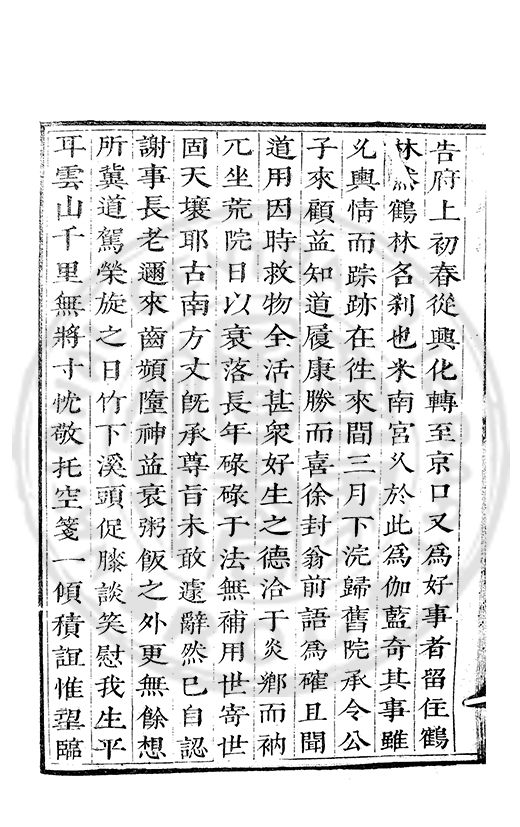 告府上初春從興化轉至京口又爲好事者留住鶴
林然鶴林名刹也米南宮久於此爲伽藍奇其事雖
允輿情而踪跡在徃來間三月下浣歸舊院承令公
子來顧益知道履康勝而喜徐封翁前語爲確且聞
道用因時救物全活甚衆好生之德洽于炎鄕而衲
兀坐荒院日以衰落長年碌碌于法無補用世寄世
固天壤耶古南方丈旣承尊旨未敢遽辭然已自認
謝事長老邇來齒頻墮神益衰粥飯之外更無餘想
所冀道駕榮旋之日竹下溪頭促膝談笑慰我生平
耳雲山千里無將寸忱敬托空箋一傾積誼惟望臨